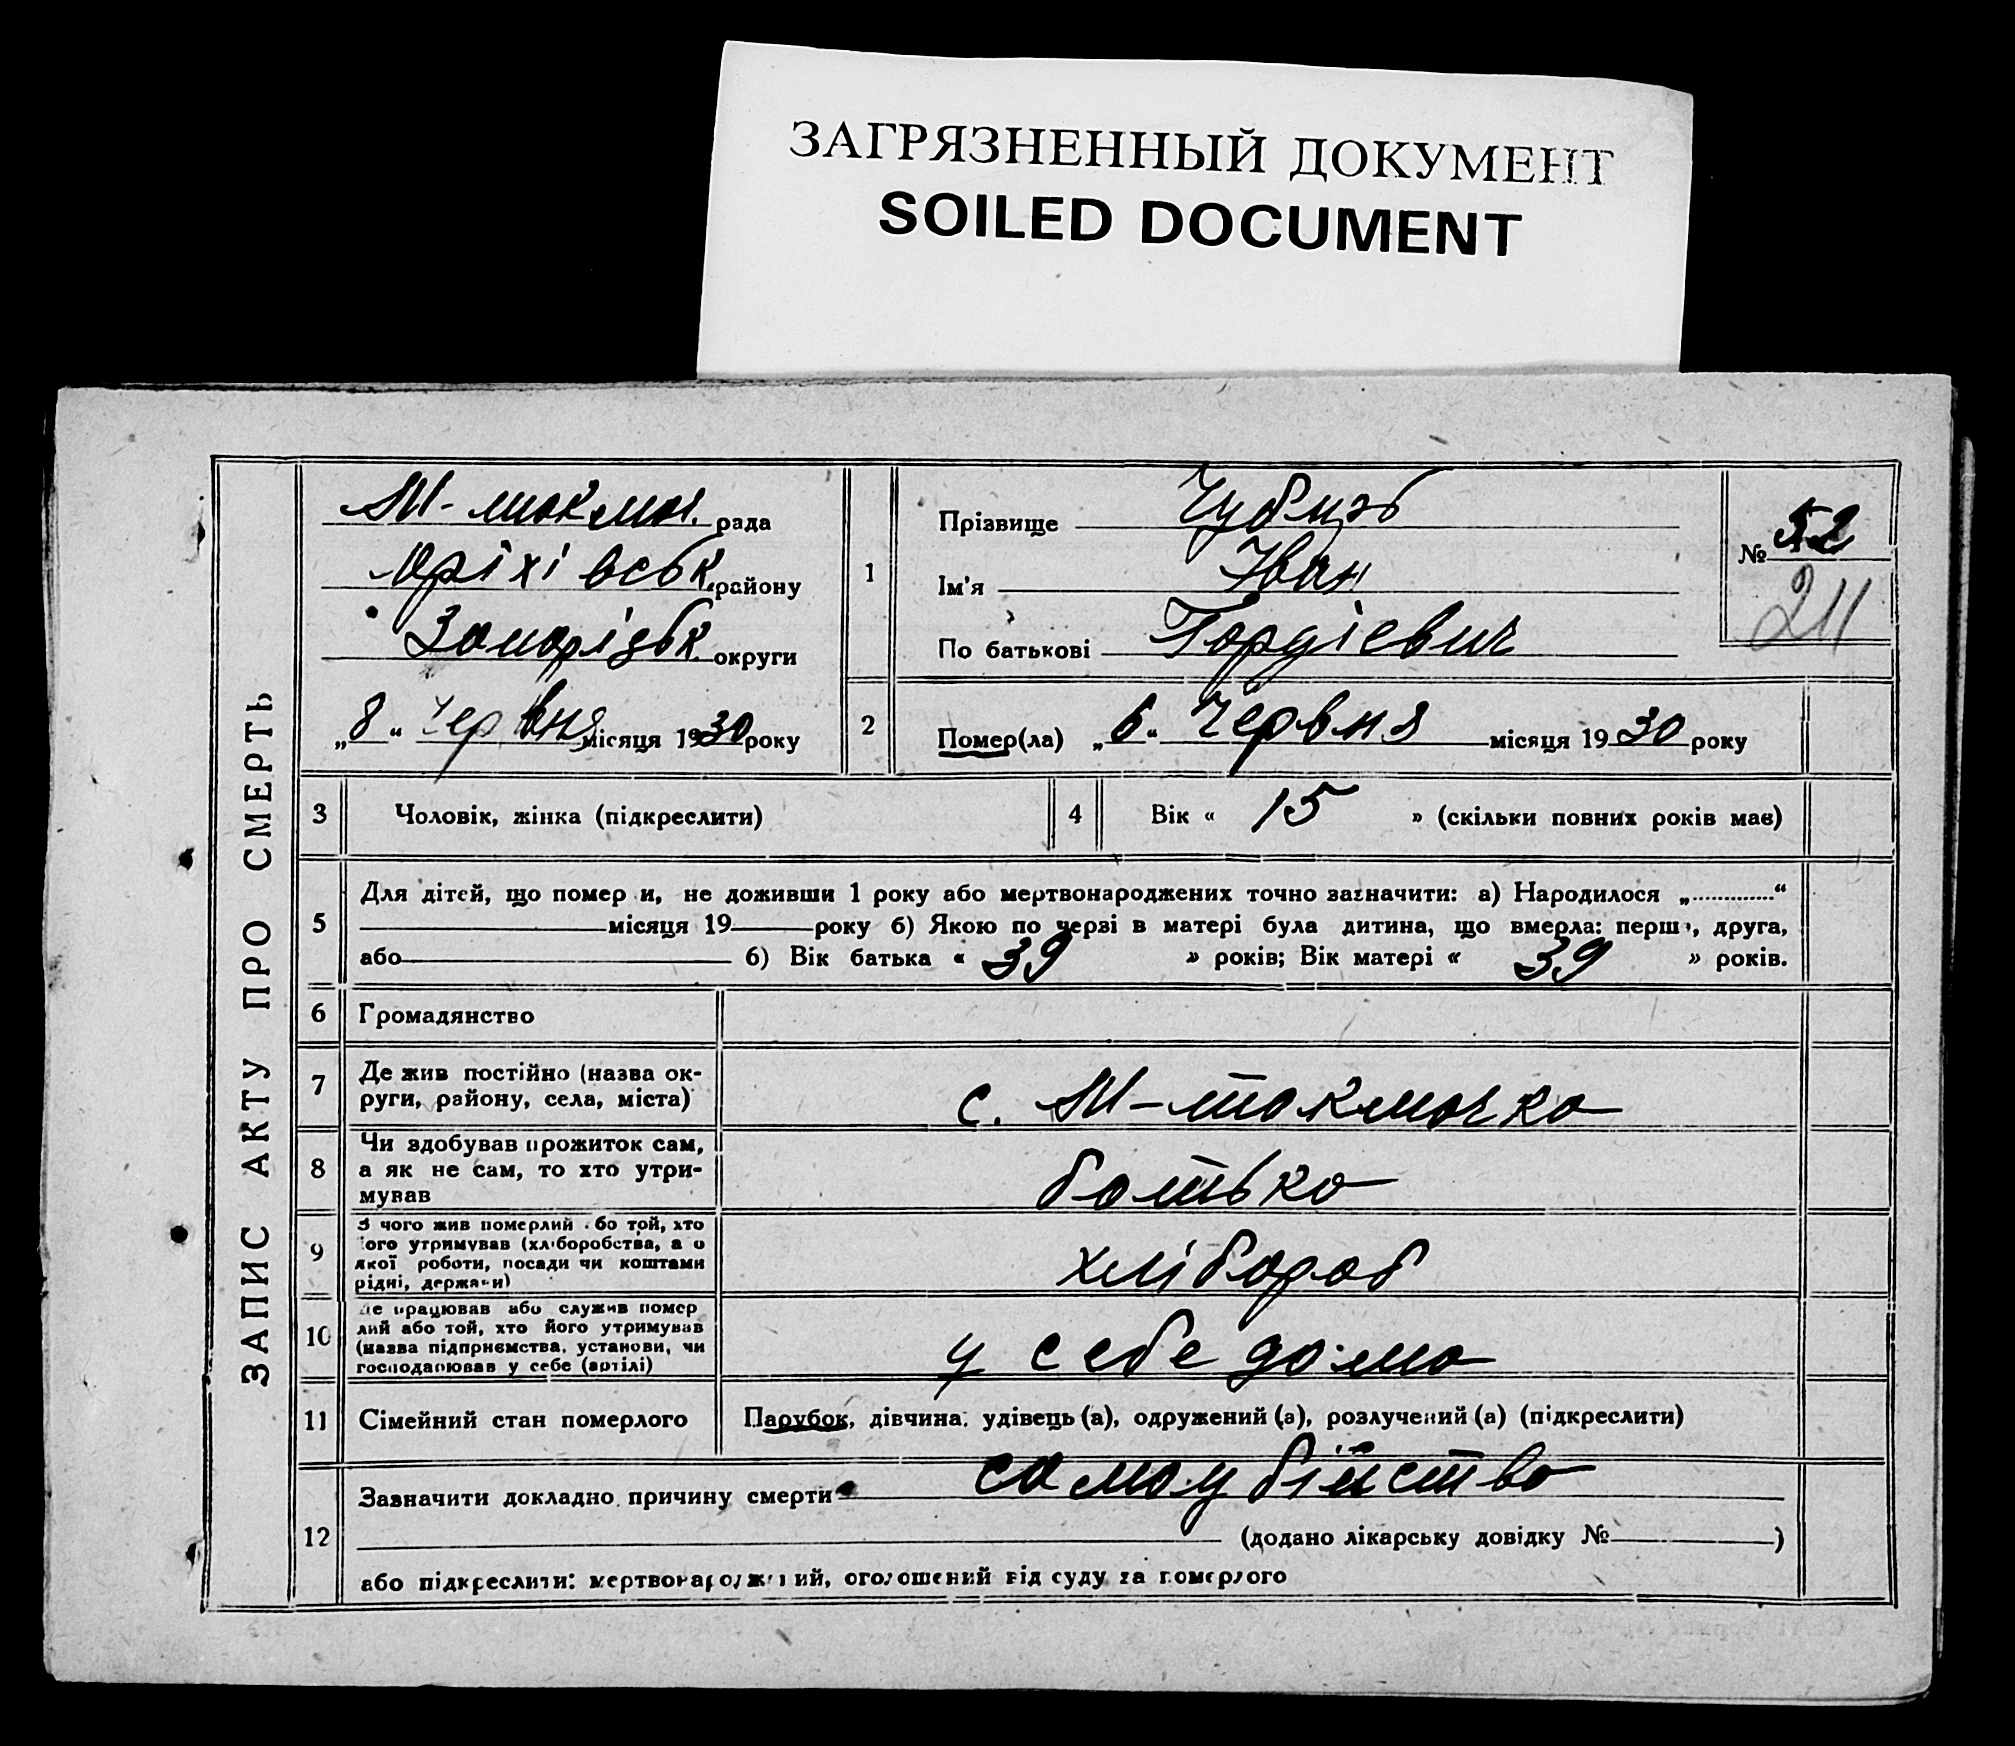 ЗАГРЯЗНЕННЫЙ ДОКУМЕНТ
SOILED DOCUMENT
ЗАПИС АКТУ ПРО СМЕРТЬ
М-токмач. рада
Оріхівськ. району
Запорізьк. округи
„8“ Червня місяця 1930 року
1
Прізвище
Ім'я Іван
По батькові Гордієвич
№ 52
211
2 Помер(ла) „6“ Червня місяця 1930 року
3 Чоловік, жінка (підкреслити)
4 Вік « 15 » (скільки повних років має)
5
Для дітей, що помер и, не доживши 1 року або мертвонароджених точно зазначити: а) Народилося „.............“
місяця 19 року б) Якою по черзі в матері була дитина, що вмерла: перш, друга,
або 6) Вік батька « 39 » років; Вік матері « 39 » років.
6 Громадянство
7 Де жив постійно (назва ок-
руги, району, села, міста)
с. М-токмачка
8 Чи здобував прожиток сам,
а як не сам, то хто утри-
мував
батько
9 З чого жив померлий бо той, хто
ого утримував (хліборобства, а о
якої роботи, посади чи коштами
рідні, держави)
хлібороб
10 е працював або служив помер
лий або той, хто його утримував
(назва підприємства, установи, чи
господарював у себе (артілі)
у себе дома
11 Сімейний стан померлого
Парубок, дівчина, удівець (а), одружений (а), розлучений (а) (підкреслити)
12
Зазначити докладно причину смерти самоубійство
(додано лікарську довідку № )
або підкреслити: мертвонароджений, оголошений від суду за померлого